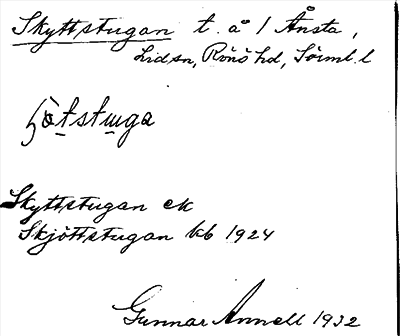 Skyttstugan t. å 1 Ånsta,
Lidsn, Rönö hd, Sörml. l
ʃötstuga
Skyttstugan ek
Skjöttstugan kb 1924
Gunnar Annell 1932